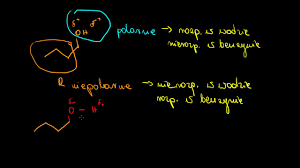 δ⁻ δ⁺
OH polarne → rozp. w wodzie
nierozp. w benzynie
R niepolarne → nierozp. w wodzie
rozp. w benzynie
O – H